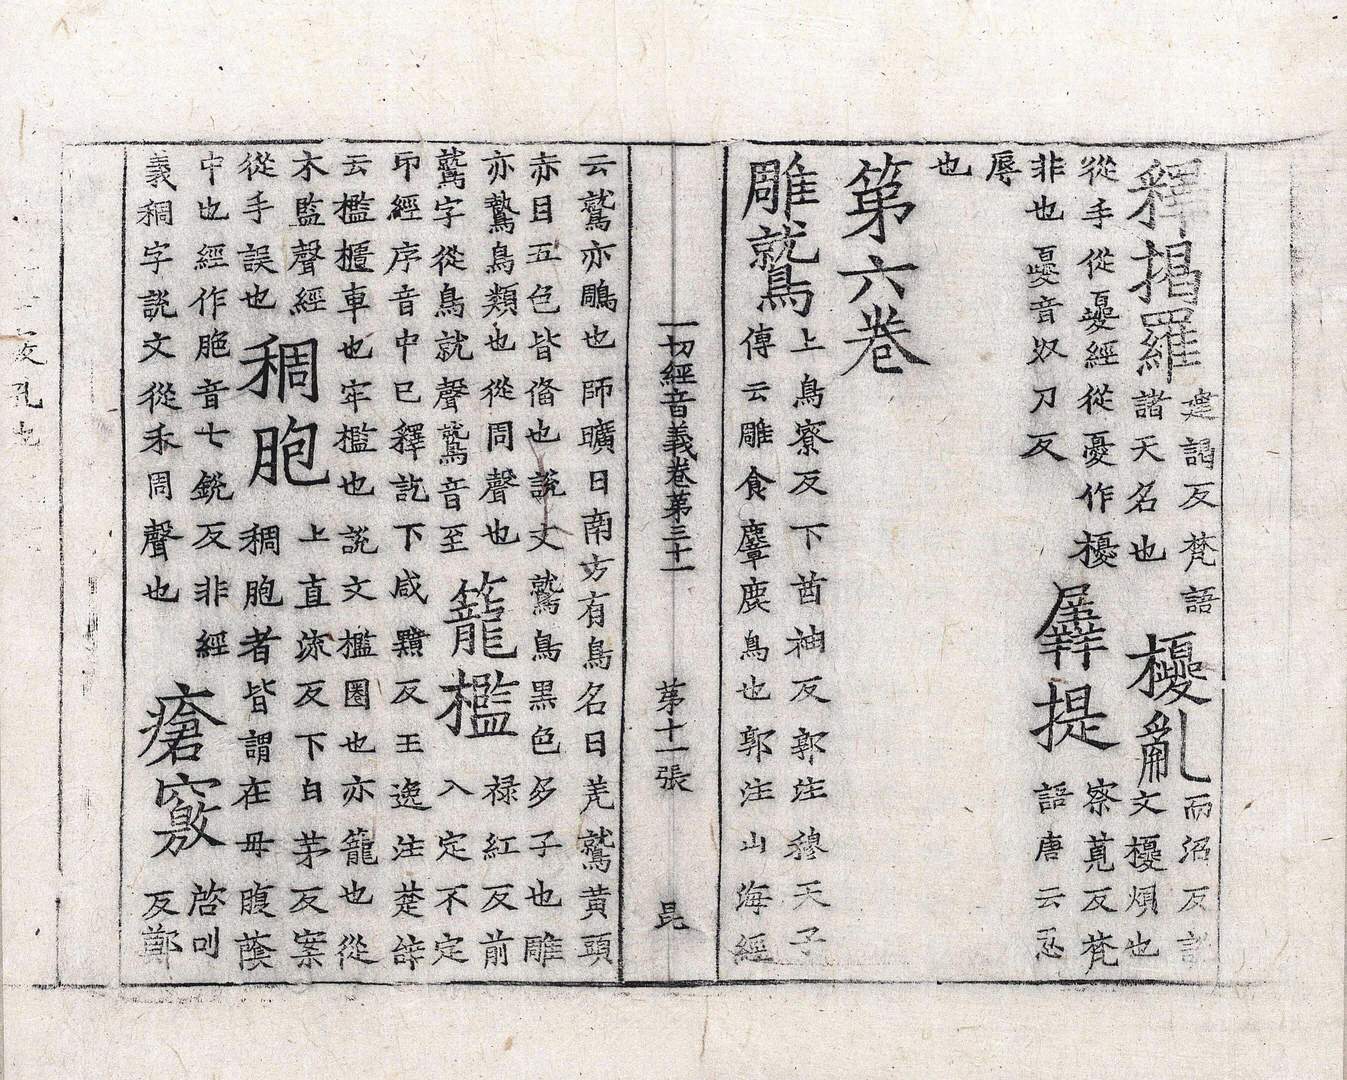 釋揭羅
建謁反梵語
諸天名也
櫌亂
而沼反說
文櫌煩也
從手從夒經從憂作擾
非也夒音奴刀反
羼提
察莧反梵
語唐云忍
辱
也
第六卷
雕鷲
上鳥寮反下酋袖反郭注穆天子
傳云雕食麞鹿鳥也郭注山海經
一切經音義卷第三十一　第十一張　昆
云鷲亦鵰也師曠曰南方有鳥名曰羌鷲黃頭
赤目五色皆俻也說文鷲鳥黑色多子也雕
亦鷙鳥類也從周聲也
鷲字從鳥就聲鷙音至
籠檻
祿紅反前
入定不定
印經序音中已釋訖下咸黤反王逸注楚辭
云檻櫃車也牢檻也說文檻圈也亦籠也從
木監聲經
從手誤也
稠胞
上直流反下白茅反案
稠胞者皆謂在母腹蔭
中也經作脃音七銳反非經
義稠字說文從禾周聲也
瘡竅
啓叫
反鄭
孔也